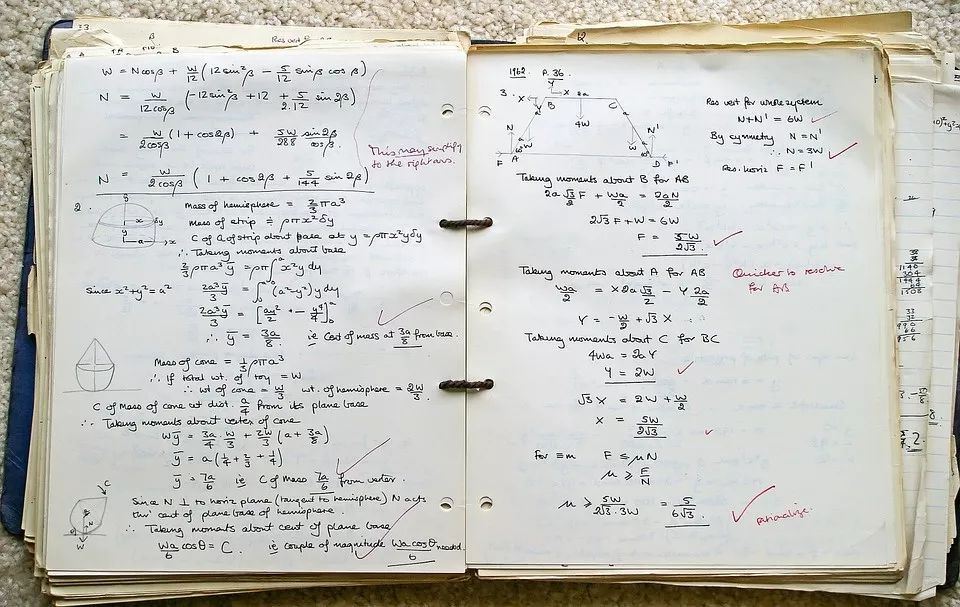 W = Ncosβ + W/12 (12sin²β − 5/12 sinβ cosβ)
N = W/12cosβ (−12sin²β + 12 + 5/2.12 sin2β)
= W/2cosβ (1 + cos2β) + 5W/288 sin2β/cosβ
This may simplify
to the right ans.
N = W/2cosβ (1 + cos2β + 5/144 sin2β)
2.
Mass of hemisphere = 2/3 πa³
Mass of strip = ρπx²δy
C of G of strip about base at y = ρπx²yδy
∴ Taking moments about base
2/3 ρπa³ȳ = ρπ∫₀ᵃ x²y dy
Since x²+y²=a² 2a³ȳ/3 = ∫₀ᵃ (a²−y²)y dy
2a³ȳ/3 = [ay²/2 − y⁴/4]₀ᵃ
∴ ȳ = 3a/8 ie Cent of mass at 3a/8 from base.
Mass of cone = 1/3 ρπa³
∴ If total wt. of toy = W
∴ wt of cone = W/3 wt. of hemisphere = 2W/3.
C of Mass of cone at dist. a/4 from its plane base
∴ Taking moments about vertex of cone
Wȳ = 3a/4 . W/3 + 2W/3 (a + 3a/8)
ȳ = a(1/4 + 2/3 + 1/4)
ȳ = 7a/6 ie C of Mass 7a/6 from vertex.
C
N
W
Since N ⊥ to horiz plane (tangent to hemisphere) N acts
thro' cent of plane base of hemisphere.
∴ Taking moments about cent of plane base
Wa/6 cosθ = C. ie couple of magnitude Wa cosθ/6 needed.
1962. P. 36
3.
Y
X X 2a
B C
4W
N W W N'
60° 60°
F A D F'
Res vert for whole system
N+N' = 6W
By symmetry N = N'
∴ N = 3W
Res. horiz F = F'
Taking moments about B for AB
2a√3/2 F + Wa/2 = 2aN/2
2√3F + W = 6W
F = 5W/2√3.
Taking moments about A for AB
Quicker to resolve
for AB
Wa/2 = X2a√3/2 − Y 2a/2
Y = −W/2 + √3 X
Taking moments about C for BC
4Wa = 2aY
Y = 2W
√3X = 2W + W/2
X = 5W/2√3
For ≡m F ≤ μN
μ ≥ F/N
μ ≥ 5W/2√3.3W = 5/6√3.
rationalize.